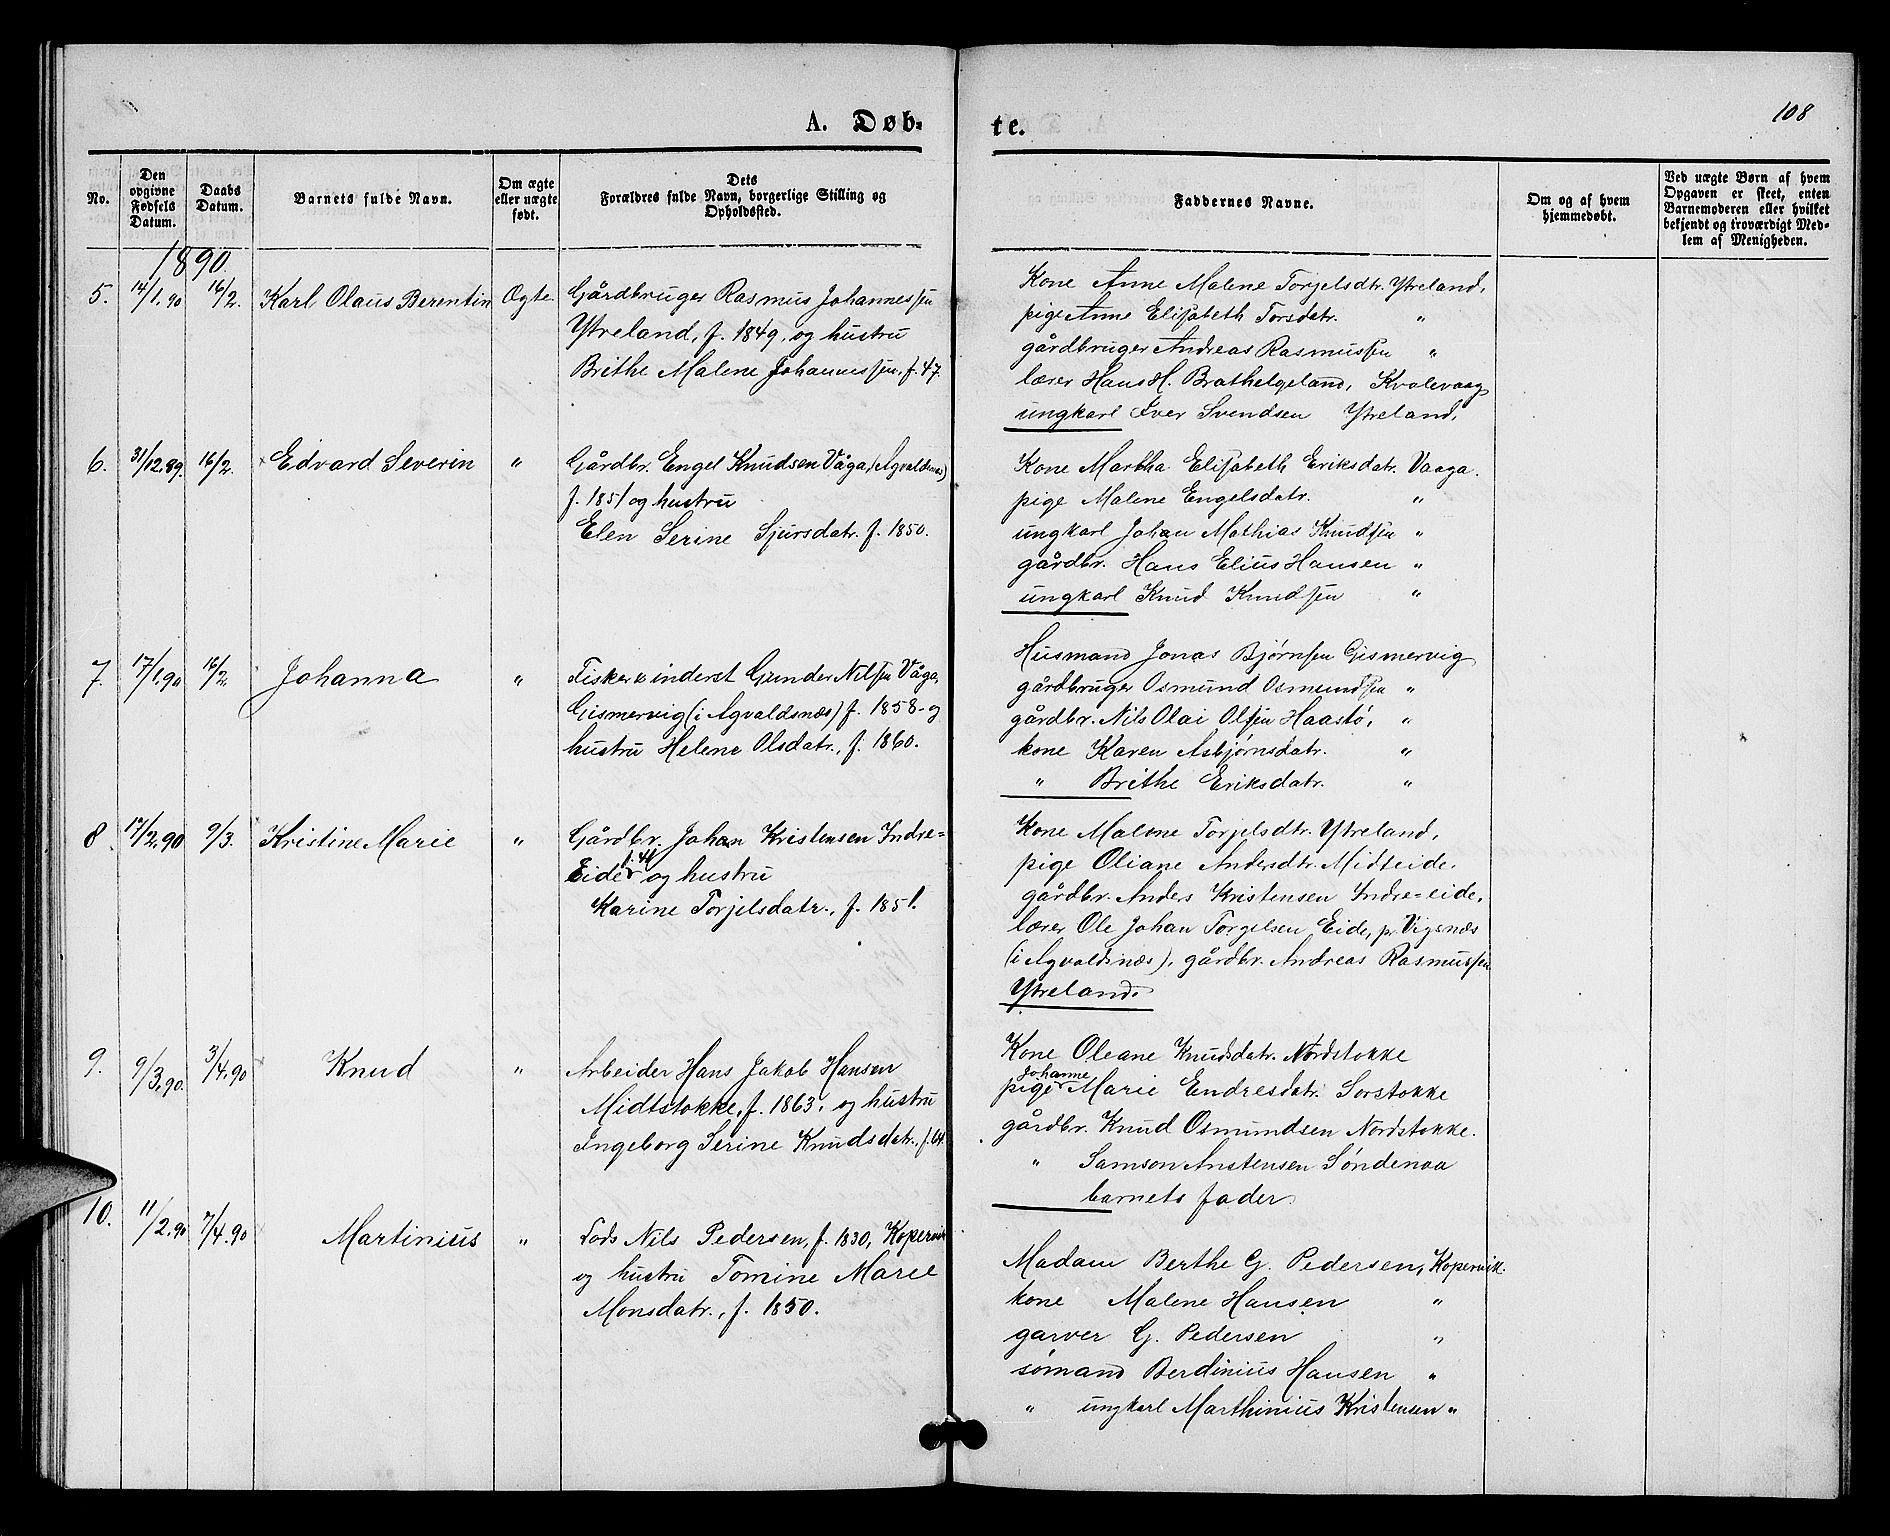 108
A. Døb-
te.
No.
Den opgivne Fødsels Datum.
Daabs Datum.
Barnets fulde Navn.
Om ægte eller uægte født.
Dets Forældres fulde Navn, borgerlige Stilling og Opholdssted.
Faddernes Navne.
Om og af hvem hjemmedøbt.
Ved uægte Børn af hvem Opgaven er skeet, enten Barnemoderen eller hvilket bekjendt og troværdigt Medlem af Menigheden.
1890.
5. 14/1.90 16/2. Karl Olaus Berentin Ægte. Gårdbruger Rasmus Johannessen
Ytreland, f. 1849, og hustru
Brithe Malene Johannessen, f. 47.
Kone Anne Malene Torjelsdtr. Ytreland,
pige Anne Elisabeth Torsdatr. "
gårdbruger Andreas Rasmussen "
lærer Hans H. Brathelgeland, Kvalevaag
ungkarl Iver Svendsen Ytreland.
6. 31/12.89. 16/2. Edvard Severin " Gårdbr. Engel Knudsen Våga, (Agvaldsnæs)
f. 1851 og hustru
Elen Serine Sjursdatr. f. 1850.
Kone Martha Elisabeth Eriksdatr. Vaaga.
pige Malene Engelsdatr. "
ungkarl Johan Mathias Knudsen "
gårdbr. Hans Elius Hansen "
ungkarl Knud Knudsen "
7. 17/1.90 16/2. Johanna " Fisker & inderst Gunder Nilsen Våga,
Gismervig (i Agvaldsnæs) f. 1858 - og
hustru Helene Olsdatr., f. 1860.
Husmand Jonas Bjørnsen Gismervig
gårdbruger Osmund Osmundsen "
gårdbr. Nils Olai Olsen Haastø, "
kone Karen Asbjørnsdatr. "
" Brithe Eriksdatr. "
8. 17/2.90 9/3. Kristine Marie " Gårdbr. Johan Kristensen Indre=
Eide og hustru
Karine Torjelsdatr., f. 1851.
Kone Malene Torjelsdtr. Ytreland,
pige Oliane Andersdtr. Midteide.
gårdbr. Anders Kristensen Indre=eide.
lærer Ole Johan Torgelsen Eide, pr. Vigsnæs
(i Agvaldsnæs), gårdbr. Andreas Rasmussen
Ytreland.
9. 9/3.90. 3/4.90 Knud " Arbeider Hans Jakob Hansen
Midtstokke, f. 1863, og hustru
Ingeborg Serine Knudsdatr., f. 64.
Kone Oleane Knudsdatr. Nordstokke
Johanne
pige Marie Endresdatr. Sørstokke
gårdbr. Knud Osmundsen Nordstokke.
" Samson Anstensen Søndenaa
barnets fader.
10. 11/2.90 7/4.90 Martinius " Fods Nils Pedersen, f. 1830, Kopervik
og hustru Tomine Marie
Monsdatr., f. 1850.
Madam Berthe G. Pedersen, Kopervik
kone Malene Hansen "
garver G. Pedersen "
sømand Berdinius Hansen "
" ungkarl Marthinius Kristensen "